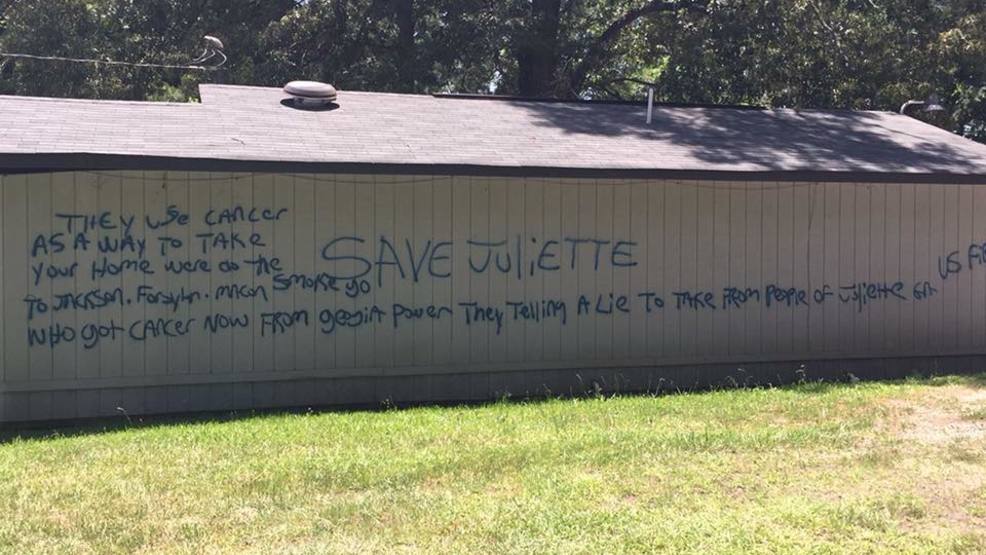 THEY USE CANCER
AS A WAY TO TAKE
YOUR HOME WERE do THE
SMOKE go
TO JACKSON. FORSYTH. MACON
SAVE JULIETTE
WHO got CANCER NOW FROM geogiA POWER THEY TELLING A LIE TO TAKE FROM PEOPLE OF JULIETTE GA
US